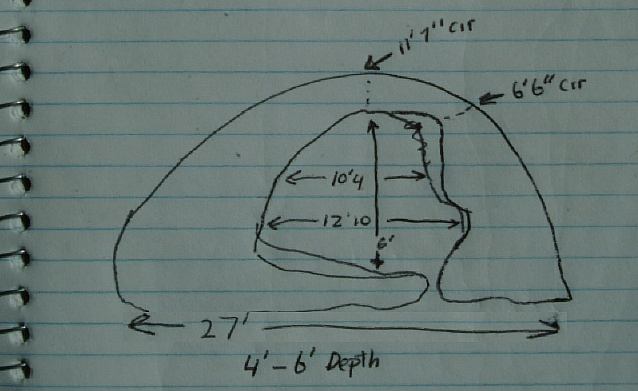 11'7" cir
6'6" cir
10'4
12'10
6'
27'
4'-6' Depth